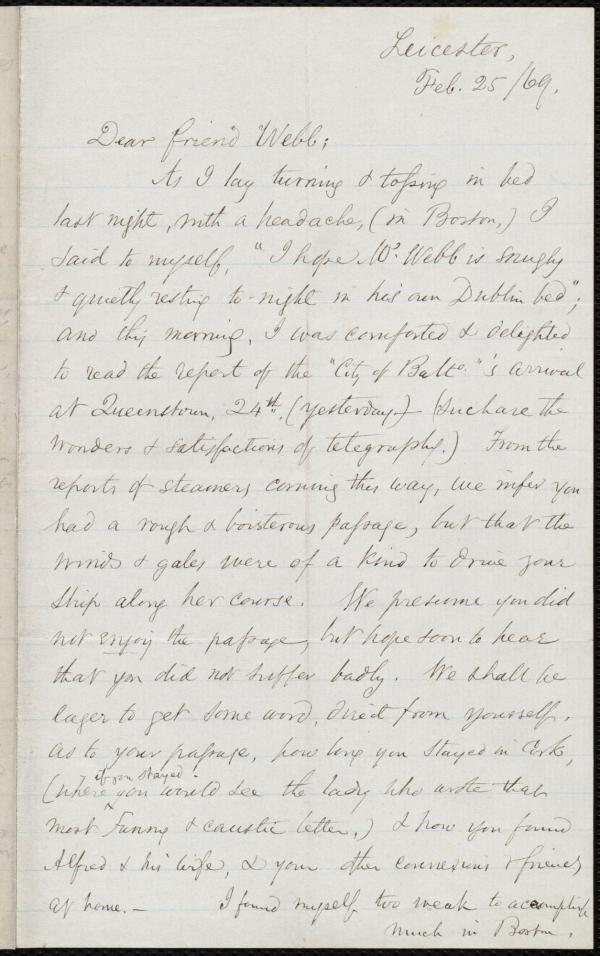 Leicester,
Feb. 25/69.
Dear friend Webb;
As I lay turning & tossing in bed
last night, with a headache, (in Boston,) I
said to myself, "I hope Mr. Webb is snugly
& quietly resting to-night in his own Dublin bed";
and this morning, I was comforted & delighted
to read the report of the "City of Balto."'s arrival
at Queenstown, 24th. (yesterday) — (Such are the
wonders & satisfactions of telegraphy.) From the
reports of steamers coming this way, we infer you
had a rough & boisterous passage, but that the
winds & gales were of a kind to drive your
ship along her course. We presume you did
not enjoy the passage, but hope soon to hear
that you did not suffer badly. We shall be
eager to get some word, direct from yourself,
as to your passage, how long you stayed in Cork,
(where if you stayed you would see the lady who wrote that
most funny & caustic letter,) & how you found
Alfred & his wife, & your other connexions & friends
at home. — I found myself too weak to accomplish
much in Boston,